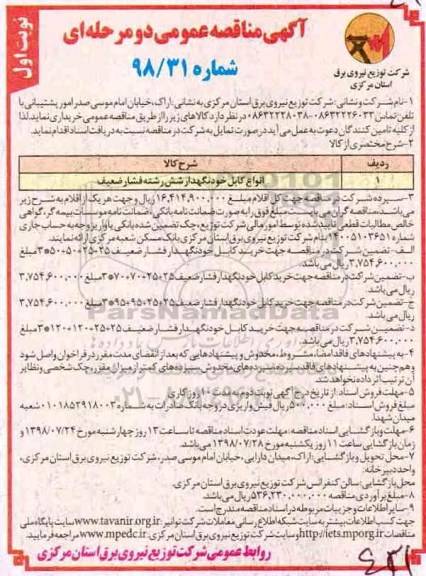 آگهی مناقصه عمومی دو مرحله‌ای
شماره ۹۸/۳۱
نوبت اول
شرکت توزیع نیروی برق
استان مرکزی
۱-نام شرکت و نشانی: شرکت توزیع نیروی برق استان مرکزی به نشانی: اراک، خیابان امام موسی صدر امور پشتیبانی با
تلفن تماس ۰۸۶۳۲۲۲۶۰۳۳-۰۸۶۳۲۲۲۸۰۳۸ در نظر دارد کالاهای زیر را از طریق مناقصه عمومی خریداری نماید. لذا
از کلیه تامین کنندگان دعوت به عمل می آید در صورت تمایل به شرکت در مناقصه نسبت به دریافت اسناد اقدام نمایند.
۲-شرح مختصری از کالا
ردیف شرح کالا
۱ انواع کابل خودنگهدار شش رشته فشار ضعیف
۳-سپرده شرکت در مناقصه جهت کل اقلام مبلغ ۱۶,۴۱۴,۹۰۰,۰۰۰ ریال و جهت هر یک از اقلام به شرح زیر
می باشد. مناقصه گران می بایست مبلغ فوق را به صورت ضمانت نامه بانکی، ضمانت نامه موسسات بیمه گر، گواهی
خالص مطالبات قطعی تایید شده توسط امور مالی شرکت توزیع، چک تضمین شده بانکی یا واریز وجه به حساب جاری
شماره ۱۴۰۰۵۱۰۳۶۵۱ بنام شرکت توزیع نیروی برق استان مرکزی بانک مسکن شعبه مرکزی ارائه نمایند.
الف-تضمین شرکت در مناقصه جهت خرید کابل خودنگهدار فشار ضعیف ۲۵+۲۵+۵۰+۵۰*۳ مبلغ
۳,۷۵۴,۶۰۰,۰۰۰ ریال می باشد.
ب-تضمین شرکت در مناقصه جهت خرید کابل خودنگهدار فشار ضعیف ۲۵+۲۵+۷۰+۷۰*۳ مبلغ ۳,۷۵۴,۶۰۰,۰۰۰
ریال می باشد.
ج-تضمین شرکت در مناقصه جهت خرید کابل خودنگهدار فشار ضعیف ۲۵+۲۵+۹۵+۹۵*۳ مبلغ ۳,۷۵۴,۶۰۰,۰۰۰
ریال می باشد.
د-تضمین شرکت در مناقصه جهت خرید کابل خودنگهدار فشار ضعیف ۲۵+۲۵+۱۲۰+۱۲۰*۳ مبلغ
۳,۷۵۴,۶۰۰,۰۰۰ ریال می باشد.
۴-به پیشنهادهای فاقد امضاء، مشروط، مخدوش و پیشنهادهایی که بعد از انقضای مدت مقرر در فراخوان واصل شود
و همچنین به پیشنهادهای فاقد سپرده، سپرده‌های مخدوش، سپرده‌های کمتر از میزان مقرر، چک شخصی و نظایر
آن ترتیب اثر داده نخواهد شد.
۵-مهلت فروش اسناد: از تاریخ درج آگهی نوبت دوم به مدت ۵ روز کاری
مبلغ فروش اسناد: مبلغ ۵۰۰,۰۰۰ ریال فیش واریزی در وجه بانک صادرات به شماره ۰۱۰۱۸۵۲۹۱۸۰۰۳ شعبه
میدان شهدا.
۶-مهلت و بازگشایی اسناد مناقصه: مهلت عودت اسناد مناقصه تا ساعت ۱۳ روز چهارشنبه مورخ ۱۳۹۸/۰۷/۲۴ و
زمان بازگشایی ساعت ۱۱ روز یکشنبه مورخ ۱۳۹۸/۰۷/۲۸ می باشد.
۷-محل تحویل و بازگشایی: اراک، میدان دارایی، خیابان امام موسی صدر، شرکت توزیع نیروی برق استان مرکزی،
واحد دبیرخانه.
محل بازگشایی: سالن کنفرانس شرکت توزیع نیروی برق استان مرکزی.
۸-مبلغ برآوردی مناقصه ۵۳۶,۲۳۰,۰۰۰,۰۰۰ ریال می باشد.
۹-سایر اطلاعات و جزییات مربوطه در اسناد مناقصه مندرج است.
جهت کسب اطلاعات بیشتر به سایت شبکه اطلاع رسانی معاملات شرکت توانیر www.tavanir.org.ir سایت پایگاه ملی
مناقصات http://iets.mporg.ir و سایت شرکت توزیع برق استان مرکزی www.mpedc.ir مراجعه فرمایید.
روابط عمومی شرکت توزیع نیروی برق استان مرکزی
ParsNamadData